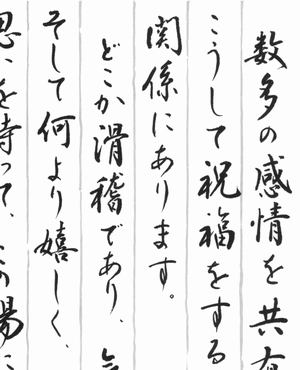 数多の感情を共有
こうして祝福をする
関係にあります。
どこか滑稽であり、
そして何より嬉しく、
思いを持って、この場に